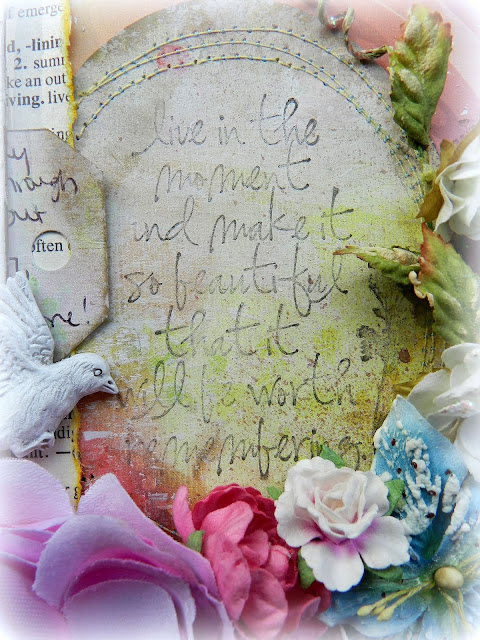 of emerge
d, -linin
2. sum
ke an out
wing. live
ing
ough
out
often
live in the
moment
and make it
so beautiful
that it
will be worth
remembering.